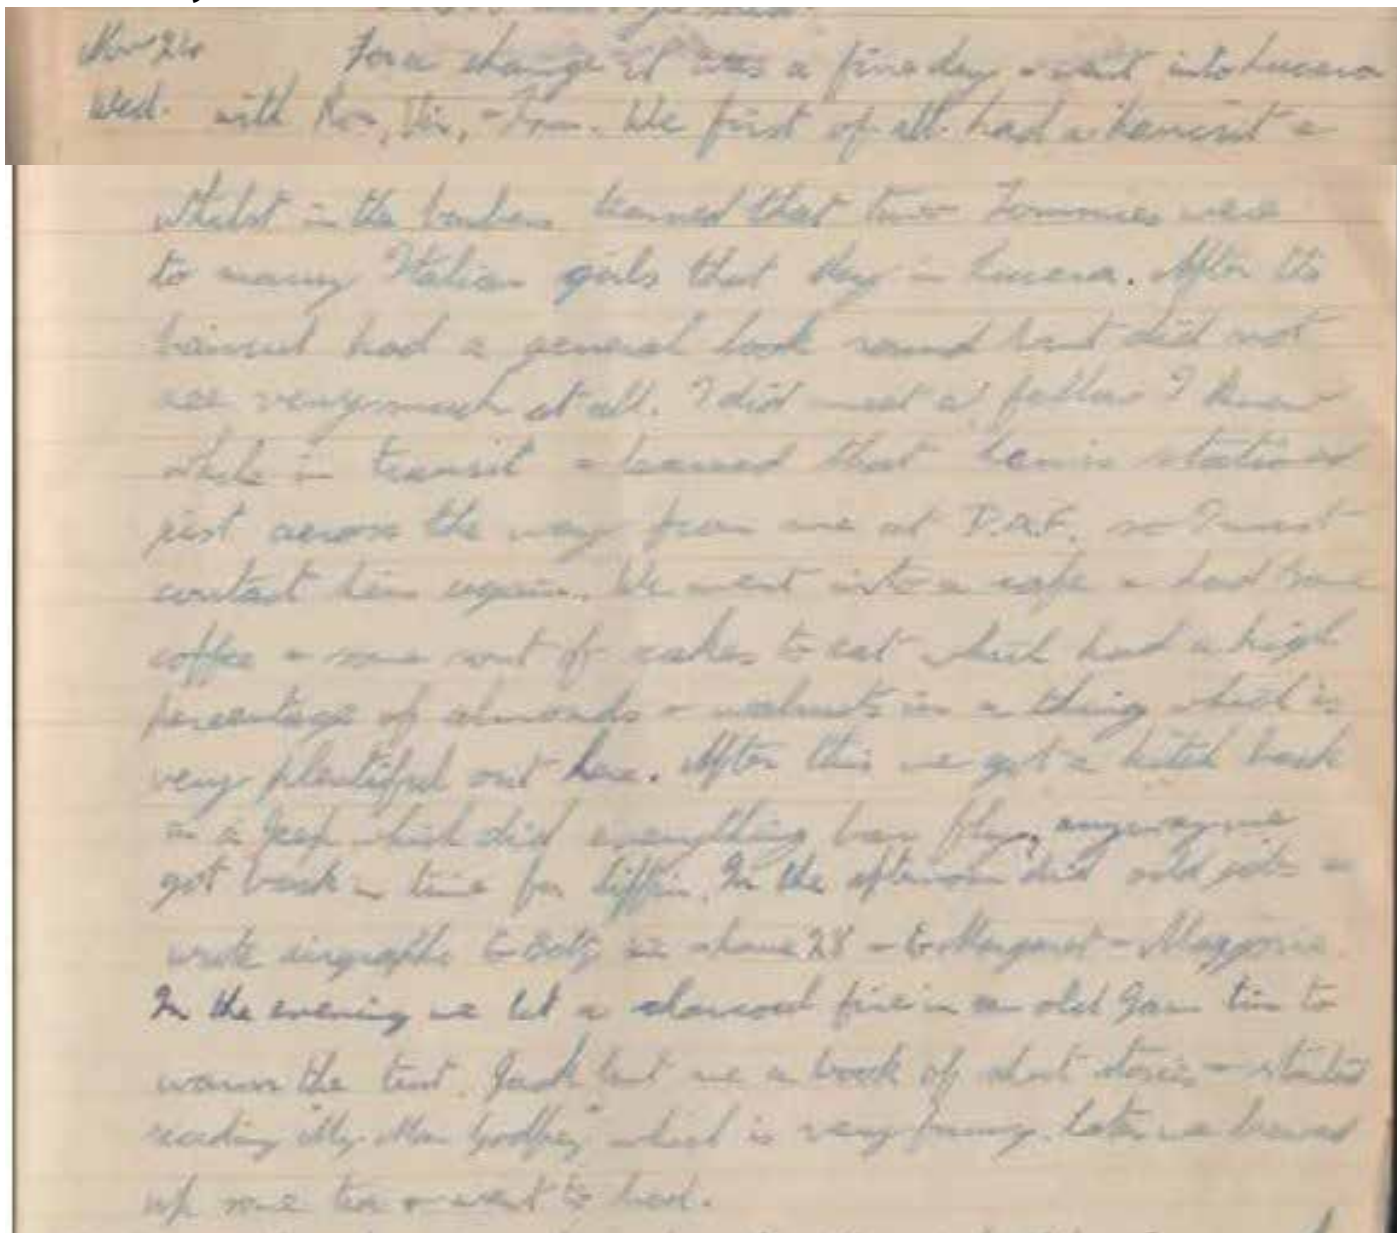 Nov 24 For a change it was a fine day & went into Lucera
Wed. with Ron, & Tom. We first of all had a haircut &
whilst in the barbers learned that two Tommies were
to marry Italian girls that day in Lucera. After the
haircut had a general look round but did not
see very much at all. I did meet a fellow I knew
while in transit & learned that he is stationed
just across the way from me at D.A.F. so I must
contact him again. We went into a cafe & had some
coffee & some sort of cakes to eat which had a high
percentage of almonds & walnuts in a thing which is
very plentiful out here. After this we got a hitch back
in a Jeep which did everything bar fly, anyway we
got back in time for tiffin. In the afternoon did odd jobs &
wrote airgraphs to Betty 28 - to Margaret - Marjorie.
In the evening we lit a charcoal fire in an old Jam tin to
warm the tent. Jack lent me a book of short stories - started
reading "My Man Godfrey" which is very funny. Later we brewed
up some tea & went to bed.